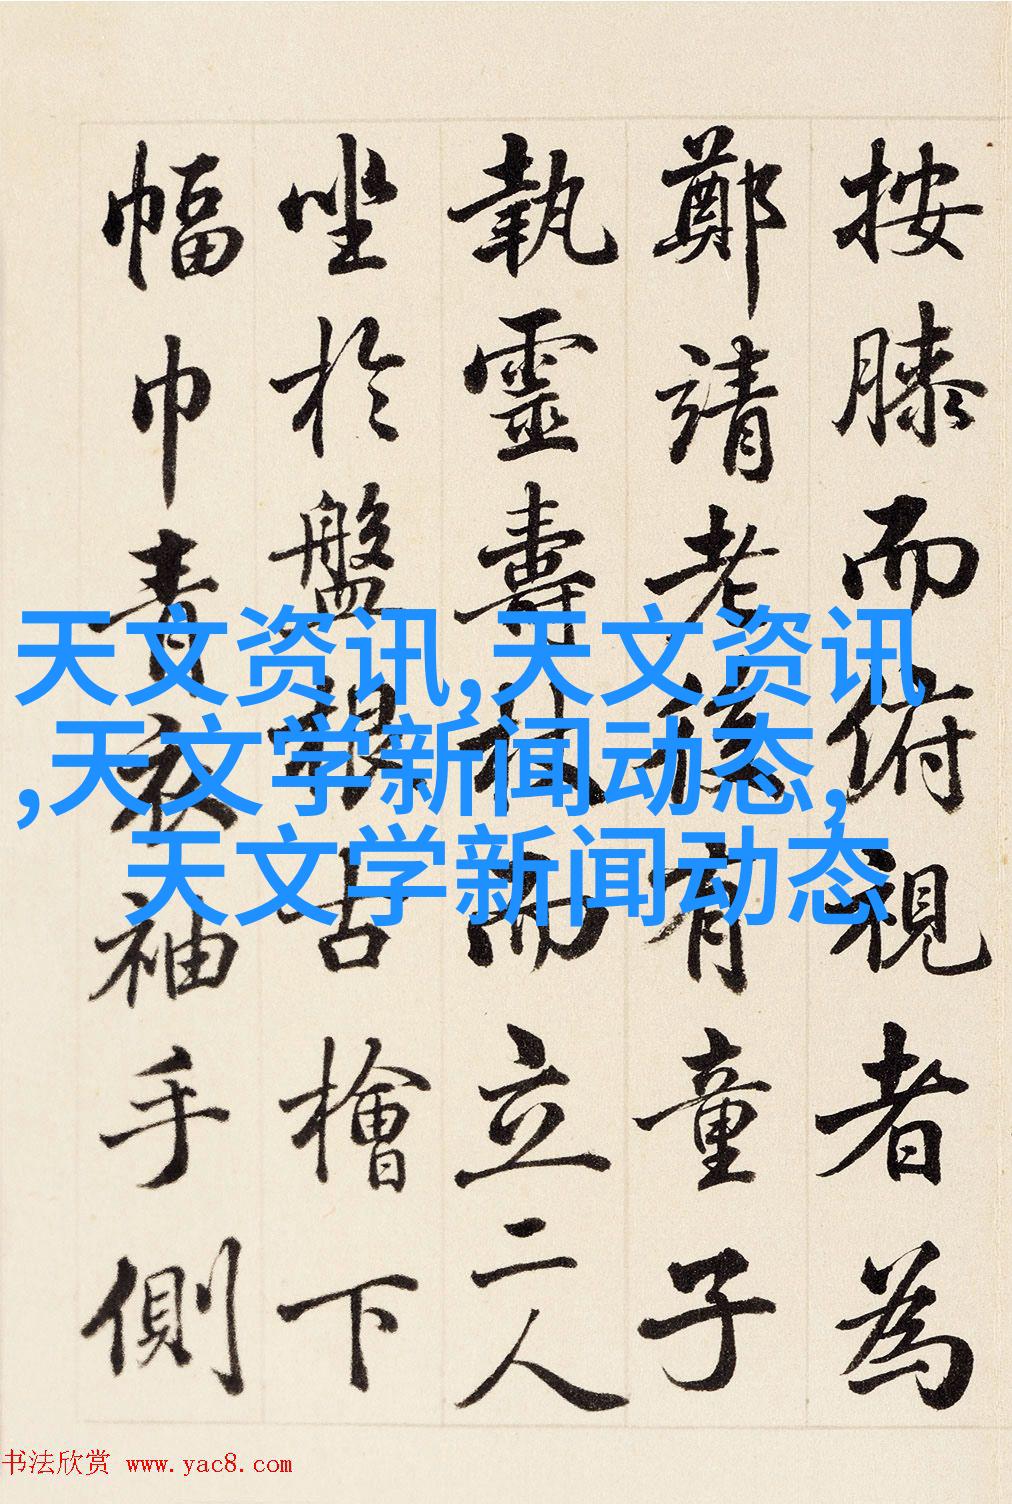 按膝而俯視者為
鄭靖老後有童子
執靈壽杖而立二人
坐於盤根古檜下
幅巾青衣袖手側
天文资讯,天文资讯
,天文学新闻动态,
天文学新闻动态
书法欣赏 www.yac8.com